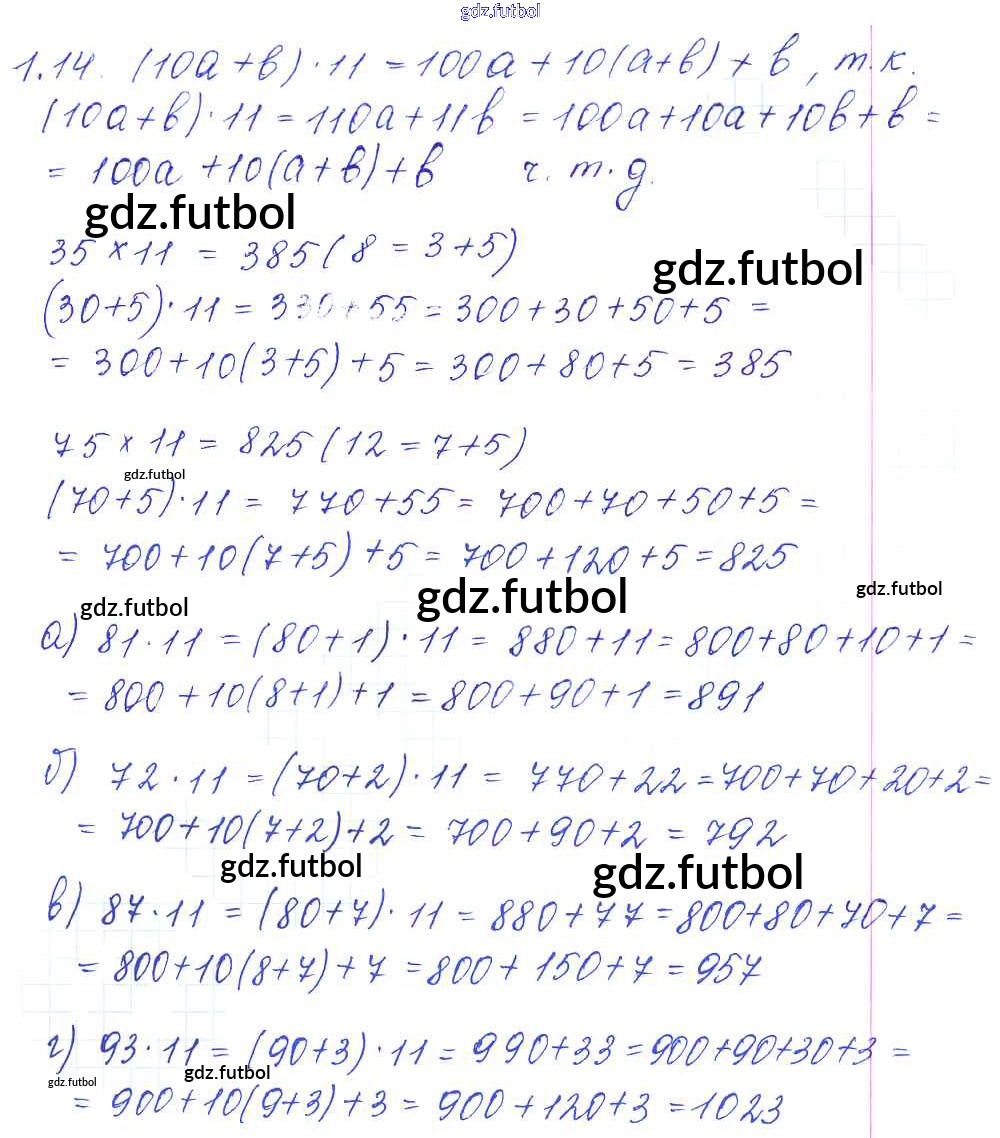 gdz.futbol
1.14. (10a+b)·11 = 100a+10(a+b)+b, т.к.
(10a+b)·11 = 110a+11b = 100a+10a+10b+b =
= 100a+10(a+b)+b ч.т.д.
gdz.futbol
35 × 11 = 385 (8 = 3+5)
gdz.futbol
(30+5)·11 = 330+55 = 300+30+50+5 =
= 300+10(3+5)+5 = 300+80+5 = 385
75 × 11 = 825 (12 = 7+5)
gdz.futbol
(70+5)·11 = 770+55 = 700+70+50+5 =
= 700+10(7+5)+5 = 700+120+5 = 825
gdz.futbol gdz.futbol gdz.futbol
а) 81·11 = (80+1)·11 = 880+11 = 800+80+10+1 =
= 800+10(8+1)+1 = 800+90+1 = 891
б) 72·11 = (70+2)·11 = 770+22 = 700+70+20+2 =
= 700+10(7+2)+2 = 700+90+2 = 792
gdz.futbol gdz.futbol
в) 87·11 = (80+7)·11 = 880+77 = 800+80+70+7 =
= 800+10(8+7)+7 = 800+150+7 = 957
г) 93·11 = (90+3)·11 = 990+33 = 900+90+30+3 =
gdz.futbol gdz.futbol
= 900+10(9+3)+3 = 900+120+3 = 1023